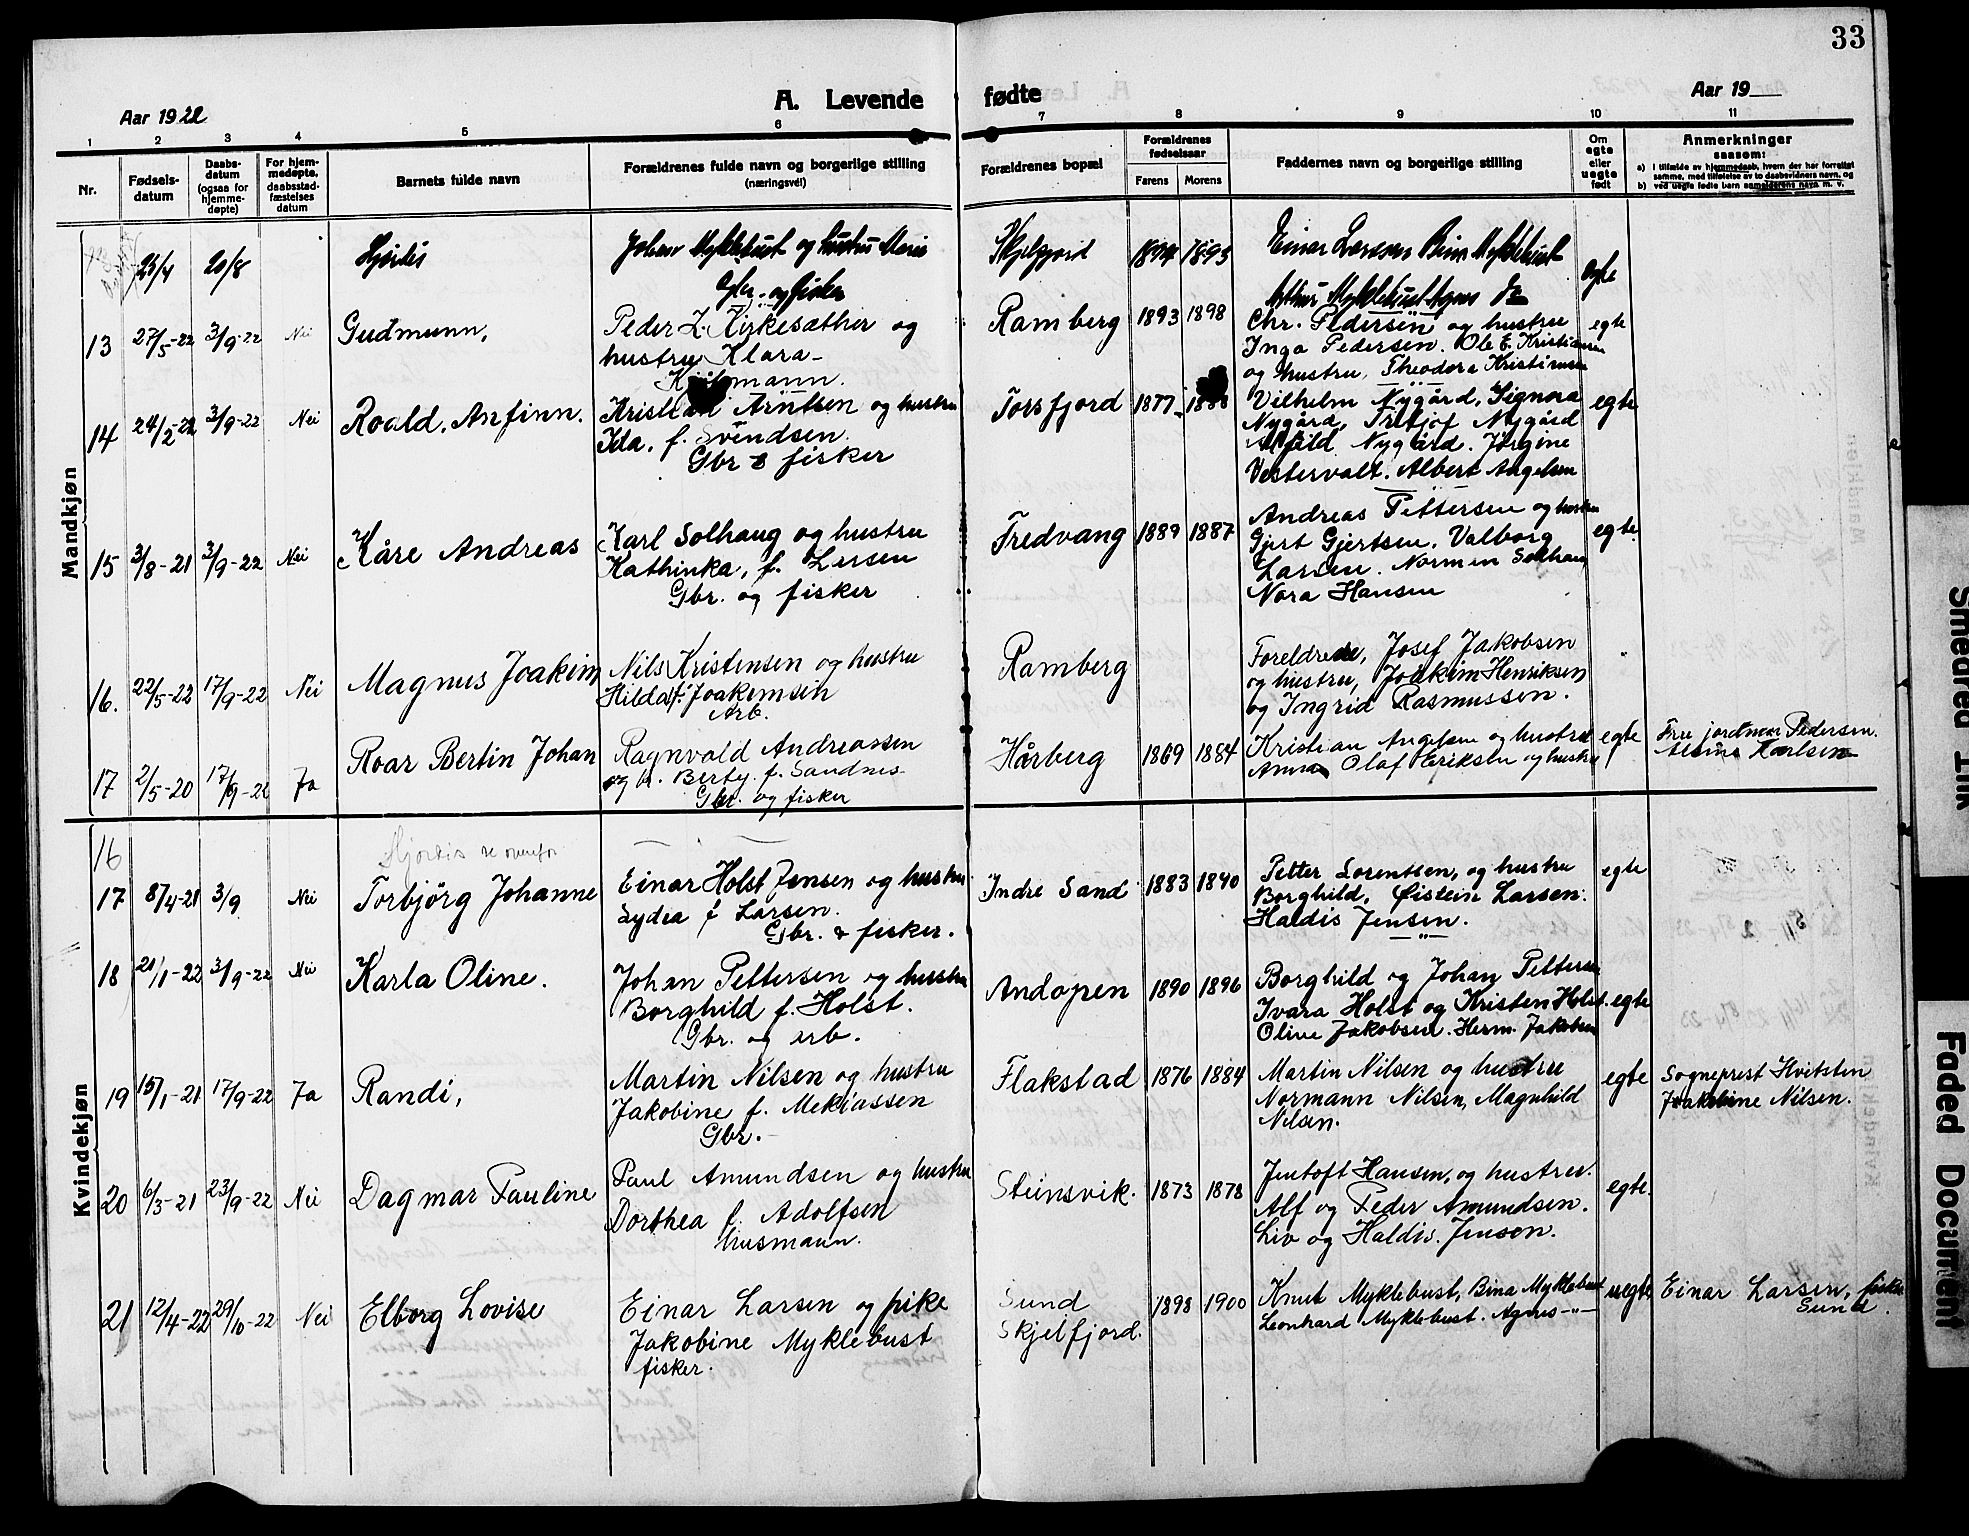 33
Aar 1922
A. Levende fødte
Aar 19
1 2 3 4 5 6 7 8 9 10 11
Nr.
Fødsels-
datum
Daabs-
datum
(ogsaa for
hjemme-
døpte)
For hjem-
medøpte,
daabsstad-
fæstelses
datum
Barnets fulde navn
Forældrenes fulde navn og borgerlige stilling
(næringsvei)
Forældrenes bopæl
Forældrenes
fødselsaar
Farens Morens
Faddernes navn og borgerlige stilling
Om
egte
eller
uegte
født
Anmerkninger
saasom:
a) i tilfælde av hjemmedaab, hvem der har forrettet
samme, med tilføielse av to daabsvidners navn, og
b) ved uegte fødte barn anmelderens navn m. v.
Mandkjøn
25/4 20/8 Hjördis Johan Myklebust og hustru Maria Skjelfjord 1894 1895 Einar Larsen Bina Myklebust egte
Gbr. og fisker
Arthur Myklebust Agnes Do
13 27/5-22 3/9-22 Nei Gudmunn, Peder Z. Kirkesæther og Ramberg 1893 1898 Chr. Pedersen og hustru egte
hustru Klara
Inga Pedersen. Ole E. Kristiansen
og hustru, Theodora Kristiansen
14 24/2-22 3/9-22 Nei Roald. Arfinn. Kristian Arntsen og hustru Torsfjord 1877 1888 Vilhelm Nygård, Signora egte
Ida, f. Svendsen.
Gbr & fisker
Nygård, Fritjof Nygård
Nygård. Jørgine
Vestervalt. Albert Angelsen
15 3/8-21 3/9-22 Nei Kåre Andreas Karl Solhaug og hustru Fredvang 1889 1887 Andreas Pettersen og hustru egte.
Kathinka, f. Larsen
Gbr. og fisker
Gjert Gjertsen. Valborg
Larsen. Normen Solhaug
Nora Hansen
16. 22/5-22 17/9-22 Nei Magnus Joakim Nils Kristensen og hustru Ramberg Foreldrene, Josef Jakobsen "
Hilda f. Joakimsen
Arb.
og hustru, Joakim Henriksen
og Ingrid Rasmussen.
17 2/5-20 17/9-22 Ja Roar Bertin Johan Ragnvald Andreassen Hårberg 1869 1884 Kristian Angelsen og hustru egte Fru jordmor Pedersen.
og h. Berty. f. Sandnes
Gbr. og fisker
Anna Olaf Eriksen og hustru
Karlsen
Kvindekjøn
16 Hjördis se ovenfor
17 8/4-21 3/9 Nei Torbjörg Johanne Einar Holst Jensen og hustru Indre Sand 1883 1840 Petter Lorentsen, og hustru egte
Lydia f Larsen.
Gbr. & fisker.
Borghild, Øistein Larsen.
Haldis Jensen.
18 21/1-22 3/9-22 Nei Karla Oline. Johan Pettersen og hustru Andopen 1890 1896 Borghild og Johan Pettersen
Borghild f. Holst.
Gbr. og erb.
Ivara Holst og Kristen Holst. egte
Oline Jakobsen. Herm. Jakobsen
19 15/1-21 17/9-22 Ja Randi, Martin Nilsen og hustru Flakstad 1876 1884 Martin Nilsen og hustru egte Sogneprest Hvitsten
Jakobine f. Mekiassen
Gbr.
Normann Nilsen, Magnhild
Nilsen.
Jakobine Nilsen.
20 6/3-21 23/9-22 Nei Dagmar Pauline Paul Amundsen og hustru Steinsvik. 1873 1878 Jentoft Hansen, og hustru. egte.
Dorthea f. Adolfsen
husmann.
Alf og Peder Amundsen.
Liv og Haldis. Jenson.
21 12/4-22 29/10-22 Nei Elborg Lovise Einar Larsen og pike Sund 1898 1900 Knut Myklebust, Bina Myklebust uegte Einar Larsen, fisker
Jakobine Myklebust
fisker.
Skjelfjord.
Leonhard Myklebust. Agnes -"-
Sund.
Smedred Ink
Faded Document